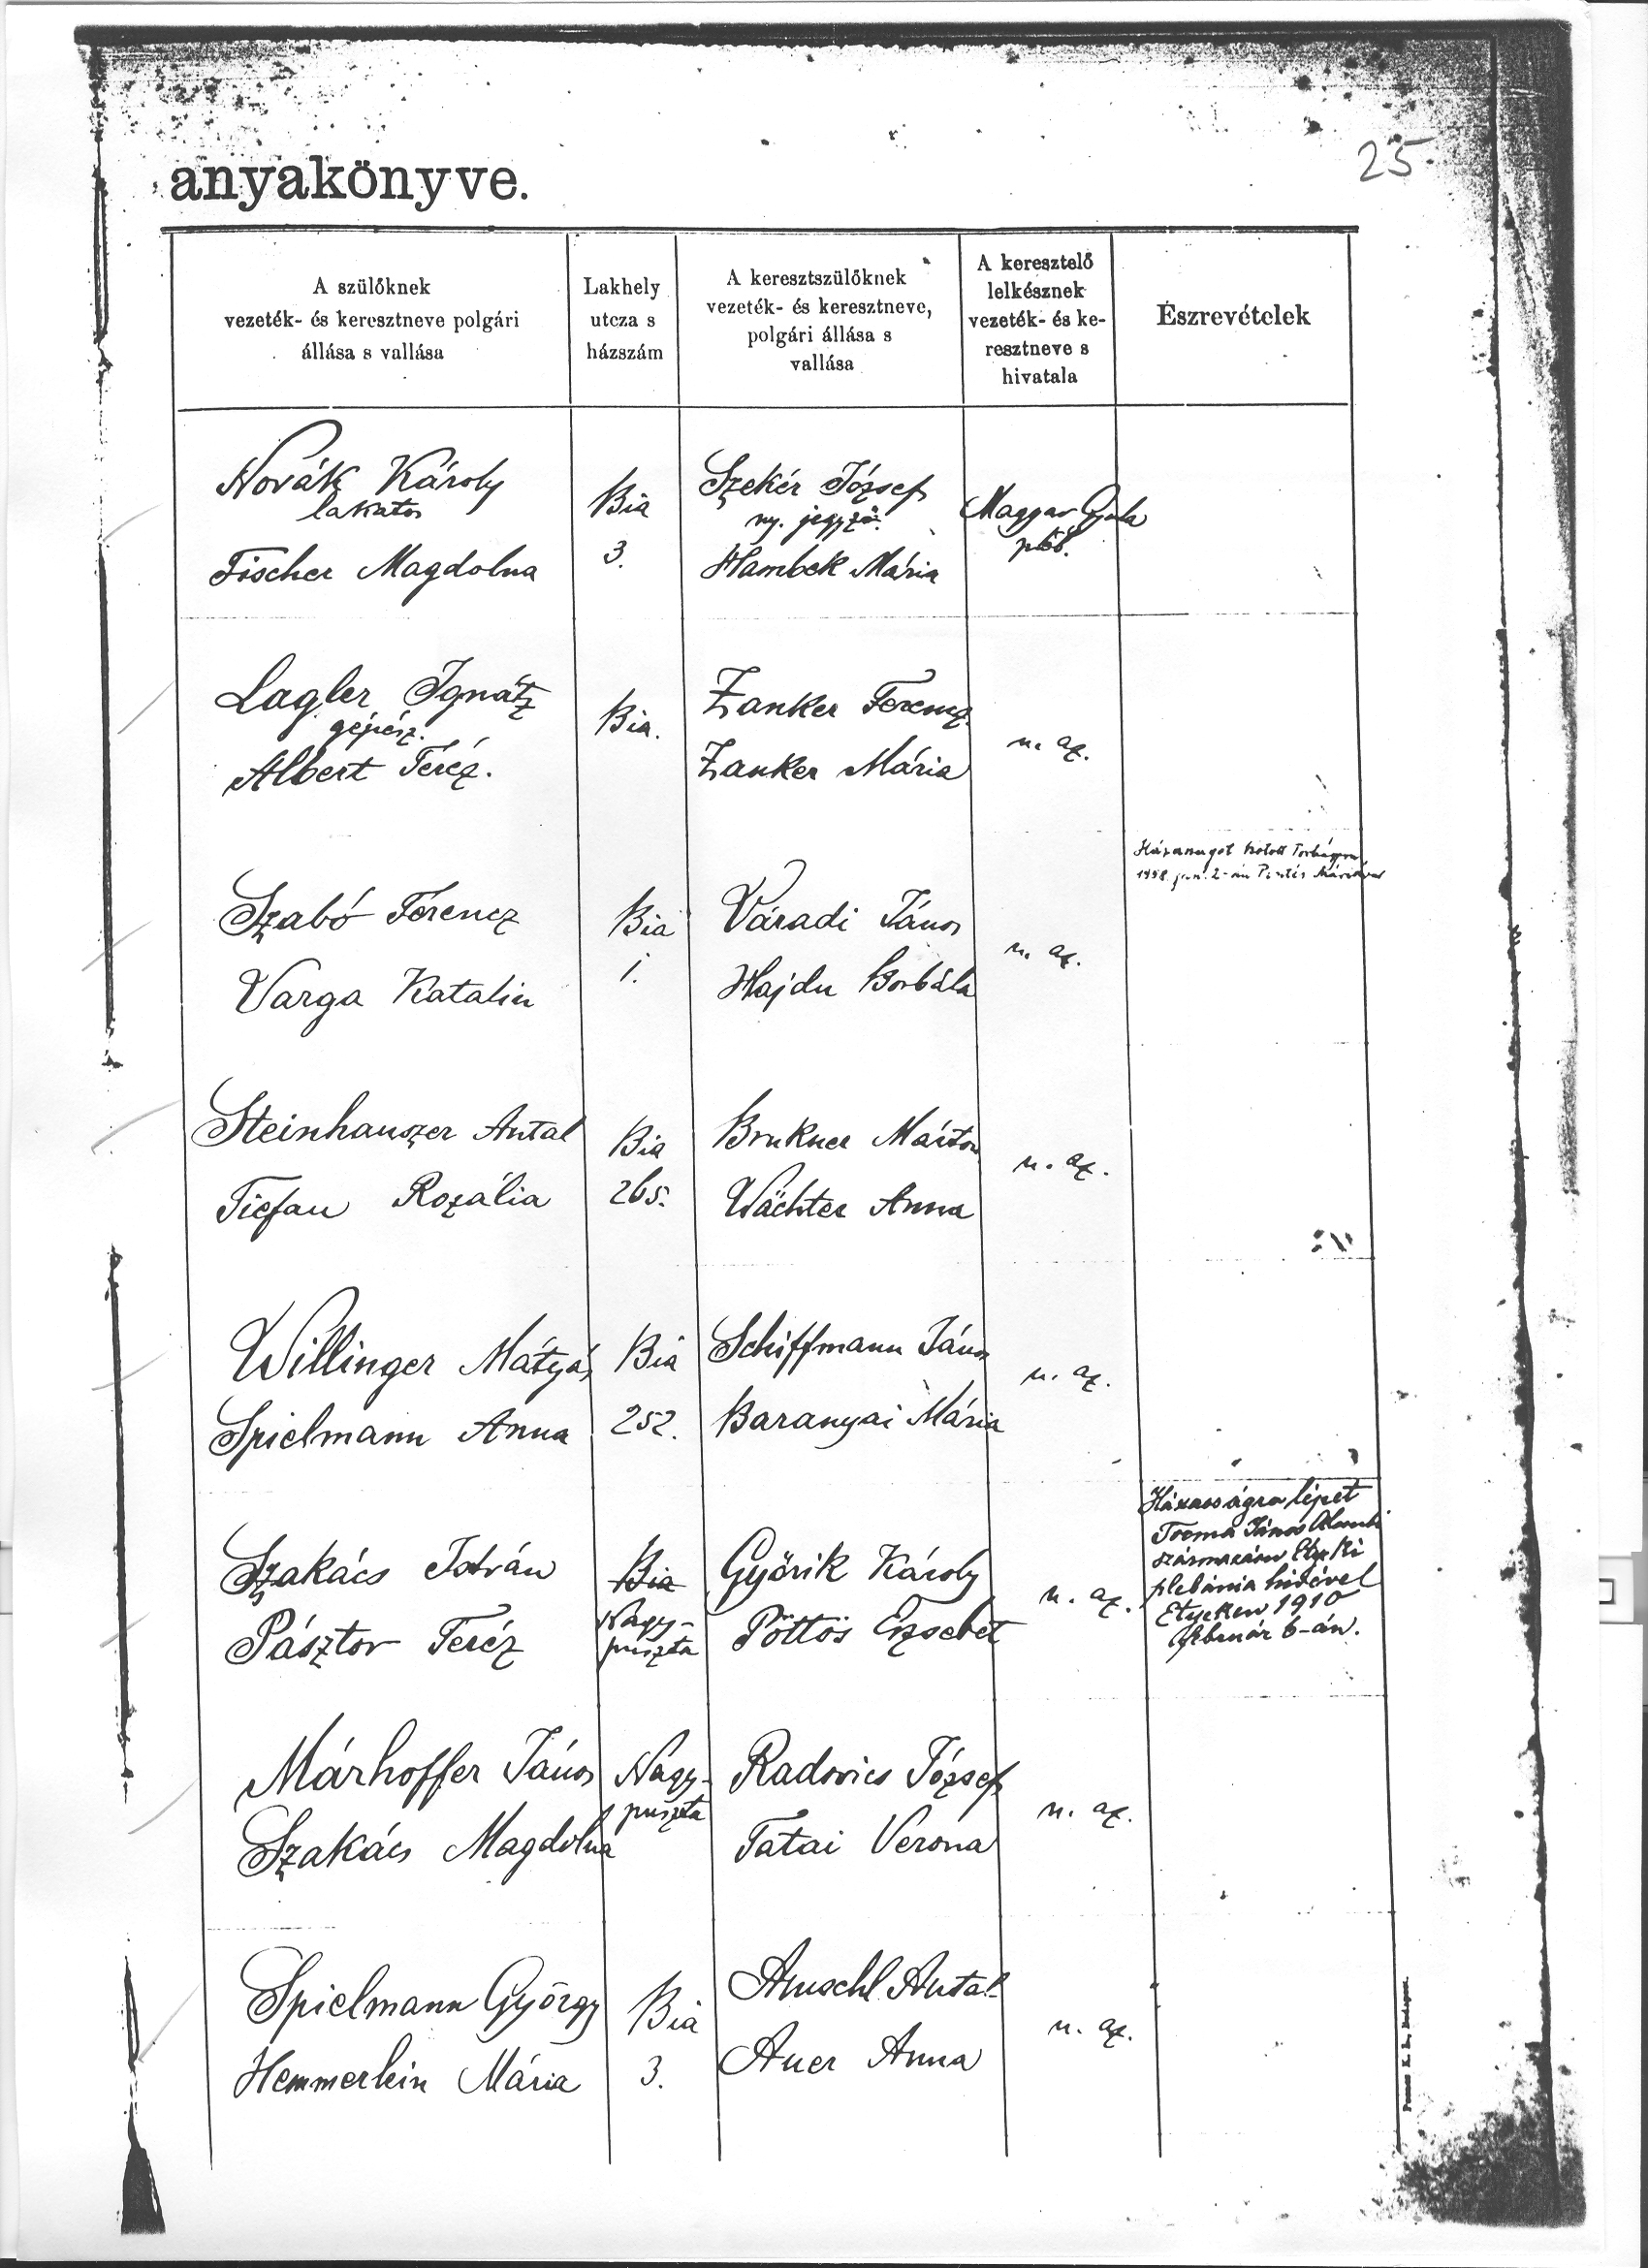 25
anyakönyve.
A szülőknek
vezeték- és keresztneve polgári
állása s vallása
Lakhely
utcza s
házszám
A keresztszülőknek
vezeték- és keresztneve,
polgári állása s
vallása
A keresztelő
lelkésznek
vezeték- és ke-
resztneve s
hivatala
Észrevételek
Novák Károly
lakatos
Fischer Magdolna
Bia
3.
Szekér József
ny. jegyző.
Hambek Mária
Magyar Gyula
pléb.
Lagler Ignátz
gépész.
Albert Teréz.
Bia.
Zanker Ferencz
Zanker Mária
u. az.
Szabó Ferencz
Varga Katalin
Bia
1.
Váradi János
Hajdu Borbála
u. az.
Házasságot kötött Torbágyon
jun. 2-án Máriával
Steinhauszer Antal
Tiefau Rozália
Bia
265.
Brukner Márton
Wächter Anna
u. az.
Willinger Mátyás
Spielmann Anna
Bia
252.
Schiffmann János
Baranyai Mária
u. az.
Szakács István
Pásztor Teréz
Bia
Nagy-
puszta
Győrik Károly
Pöttös Erzsébet
u. az.
Házasságra lépet
Torma János
Etyeki
plebánia hivével
Etyeken 1910
február 6-án.
Márhoffer János
Szakács Magdolna
Nagy-
puszta
Radovics József
Tatai Verona
u. az.
Spielmann György
Hemmerlein Mária
Bia
3.
Amschl Antal
Auer Anna
u. az.